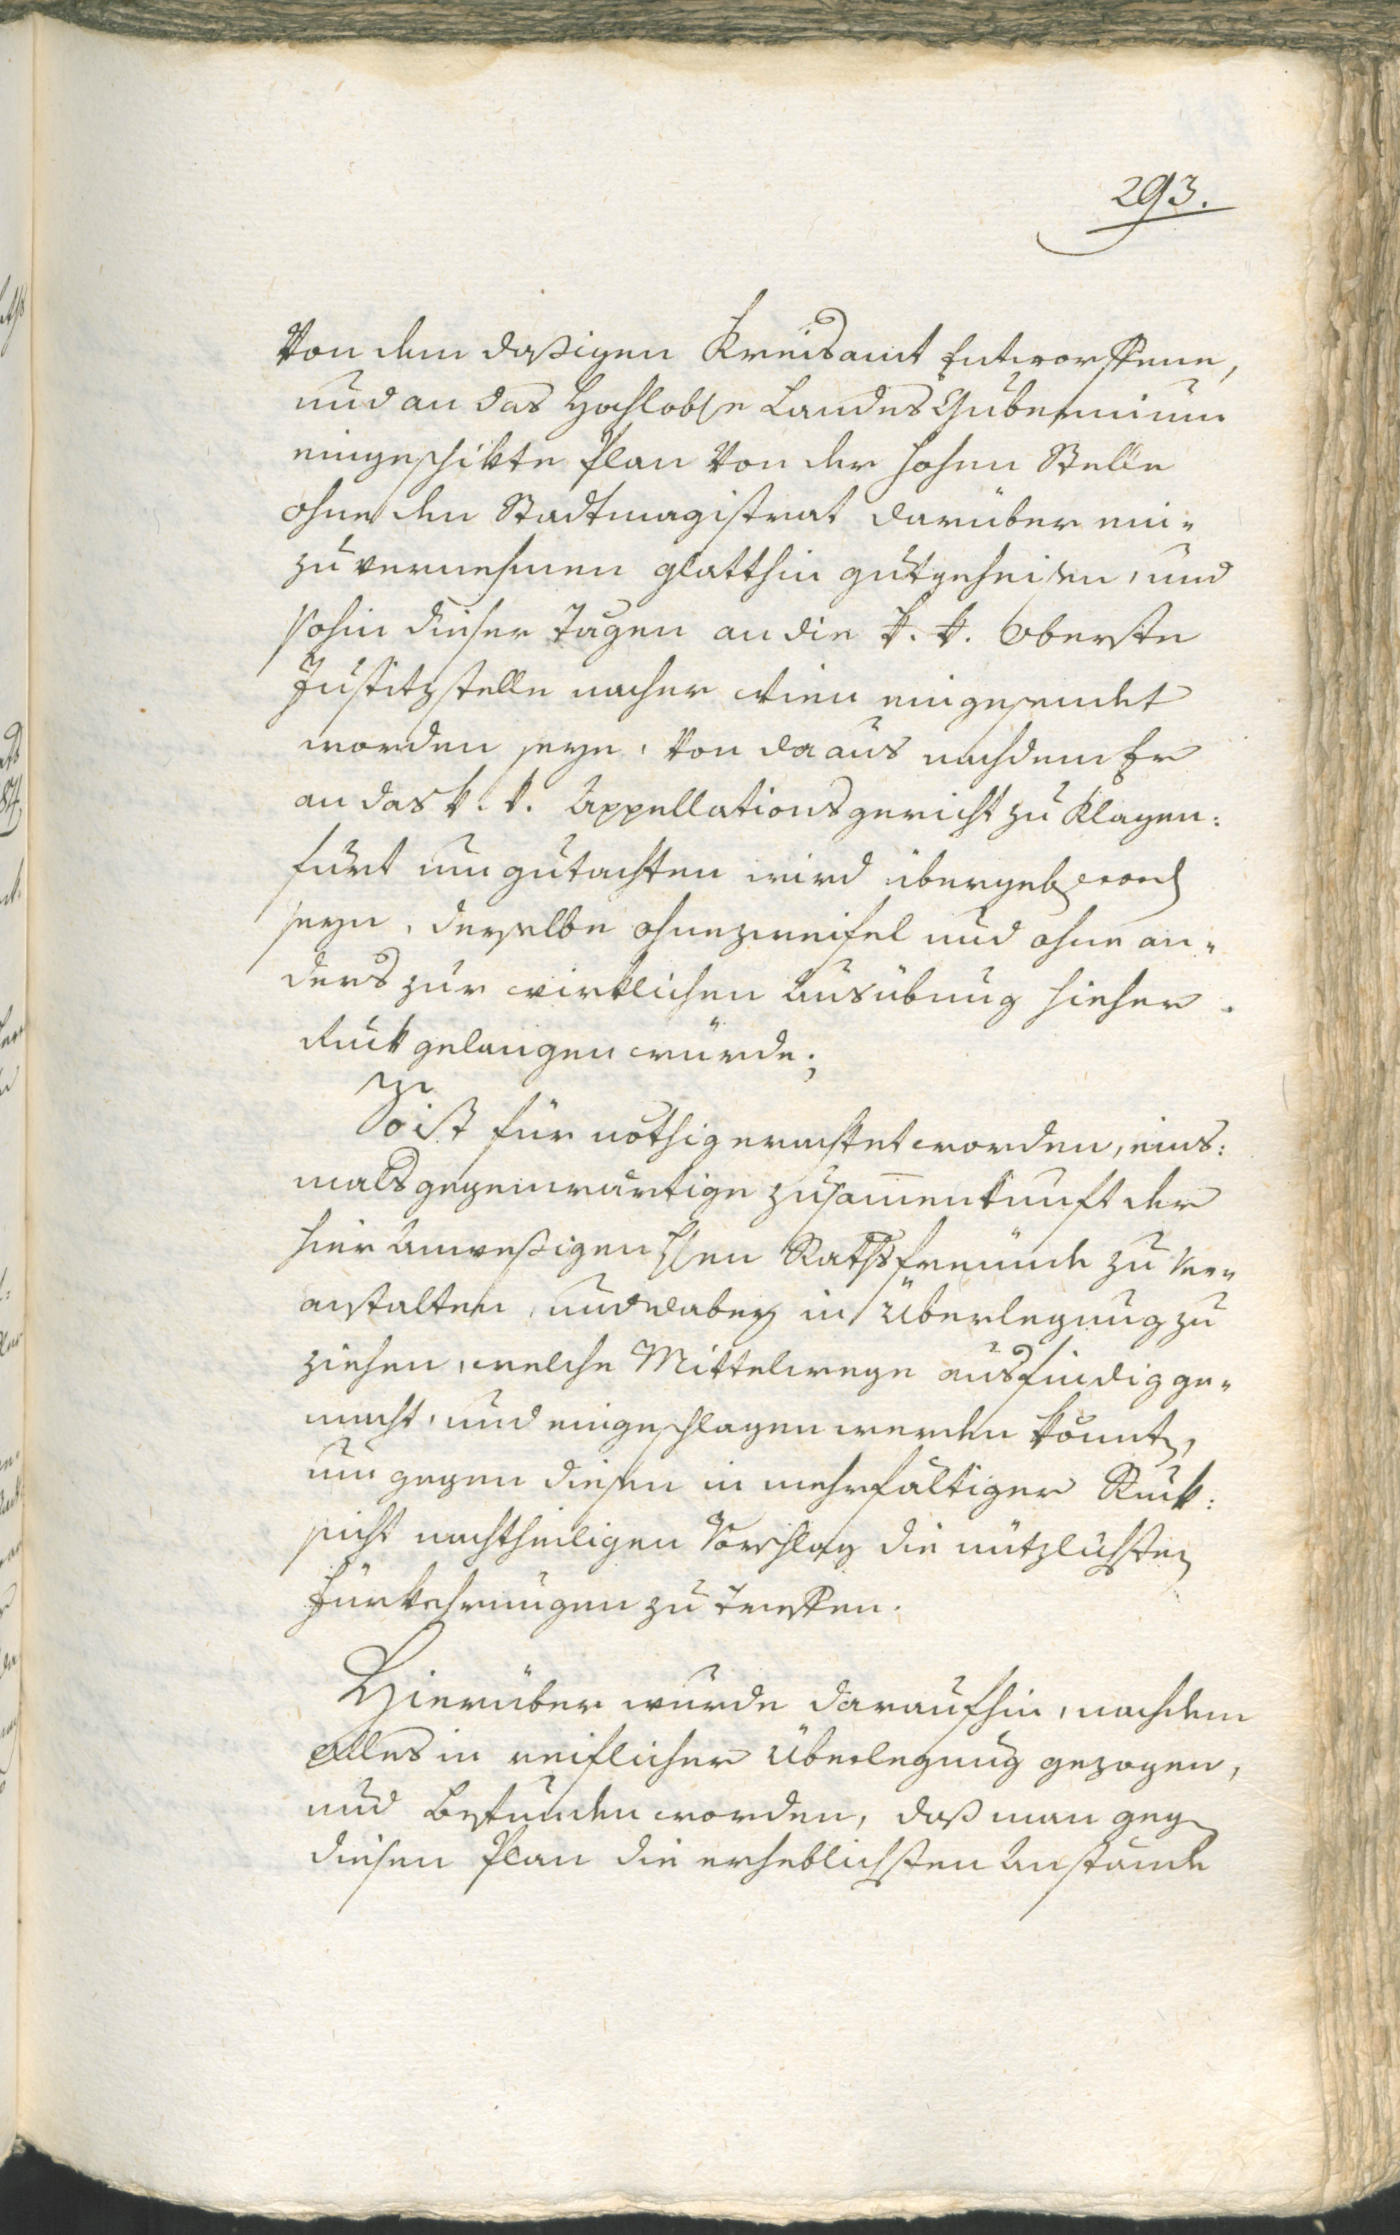 293.
Von dem dasigen Kreisamt Entworffene,
und an das Hochlobse Landes Gubernium
eingeschikte Plan Von der hohen Stelle
ohne den Stadtmagistrat darüber ein-
zuvernehmen glatthin gutgeheisen, und
sohin dieser Tagen an die k. k. Oberste
Justitzstelle nacher Wien eingesendet
worden seye, Von da aus nachdem Er
an das k. k. Appellationsgericht zu Klagen:
furt um gutachten wird übergeben word
seyn, derselbe ohnezweifel und ohne an-
ders zur wirklichen Ausübung hieher
ruk gelangen würde;
So ist für nöthig erachtet worden, eins:
mals gegenwärtige Zusam̅enkunft der
hier Anwesigen Hen Rathsfreunde zu ver-
anstalten, und dabey in Überlegung zu
ziehen, welche Mittelwege ausfindig ge-
macht, und eingeschlagen werden könnten,
um gegen diesen in mehrfältiger Ruk:
sicht nachtheiligen Vorschlag die nützlichsten
Fürkehrungen zu treffen.
Hierüber wurde daraufhin, nachdem
alles in reiflicher Überlegung gezogen,
und Befunden worden, daß man gegen
diesen Plan die erheblichsten Anstände